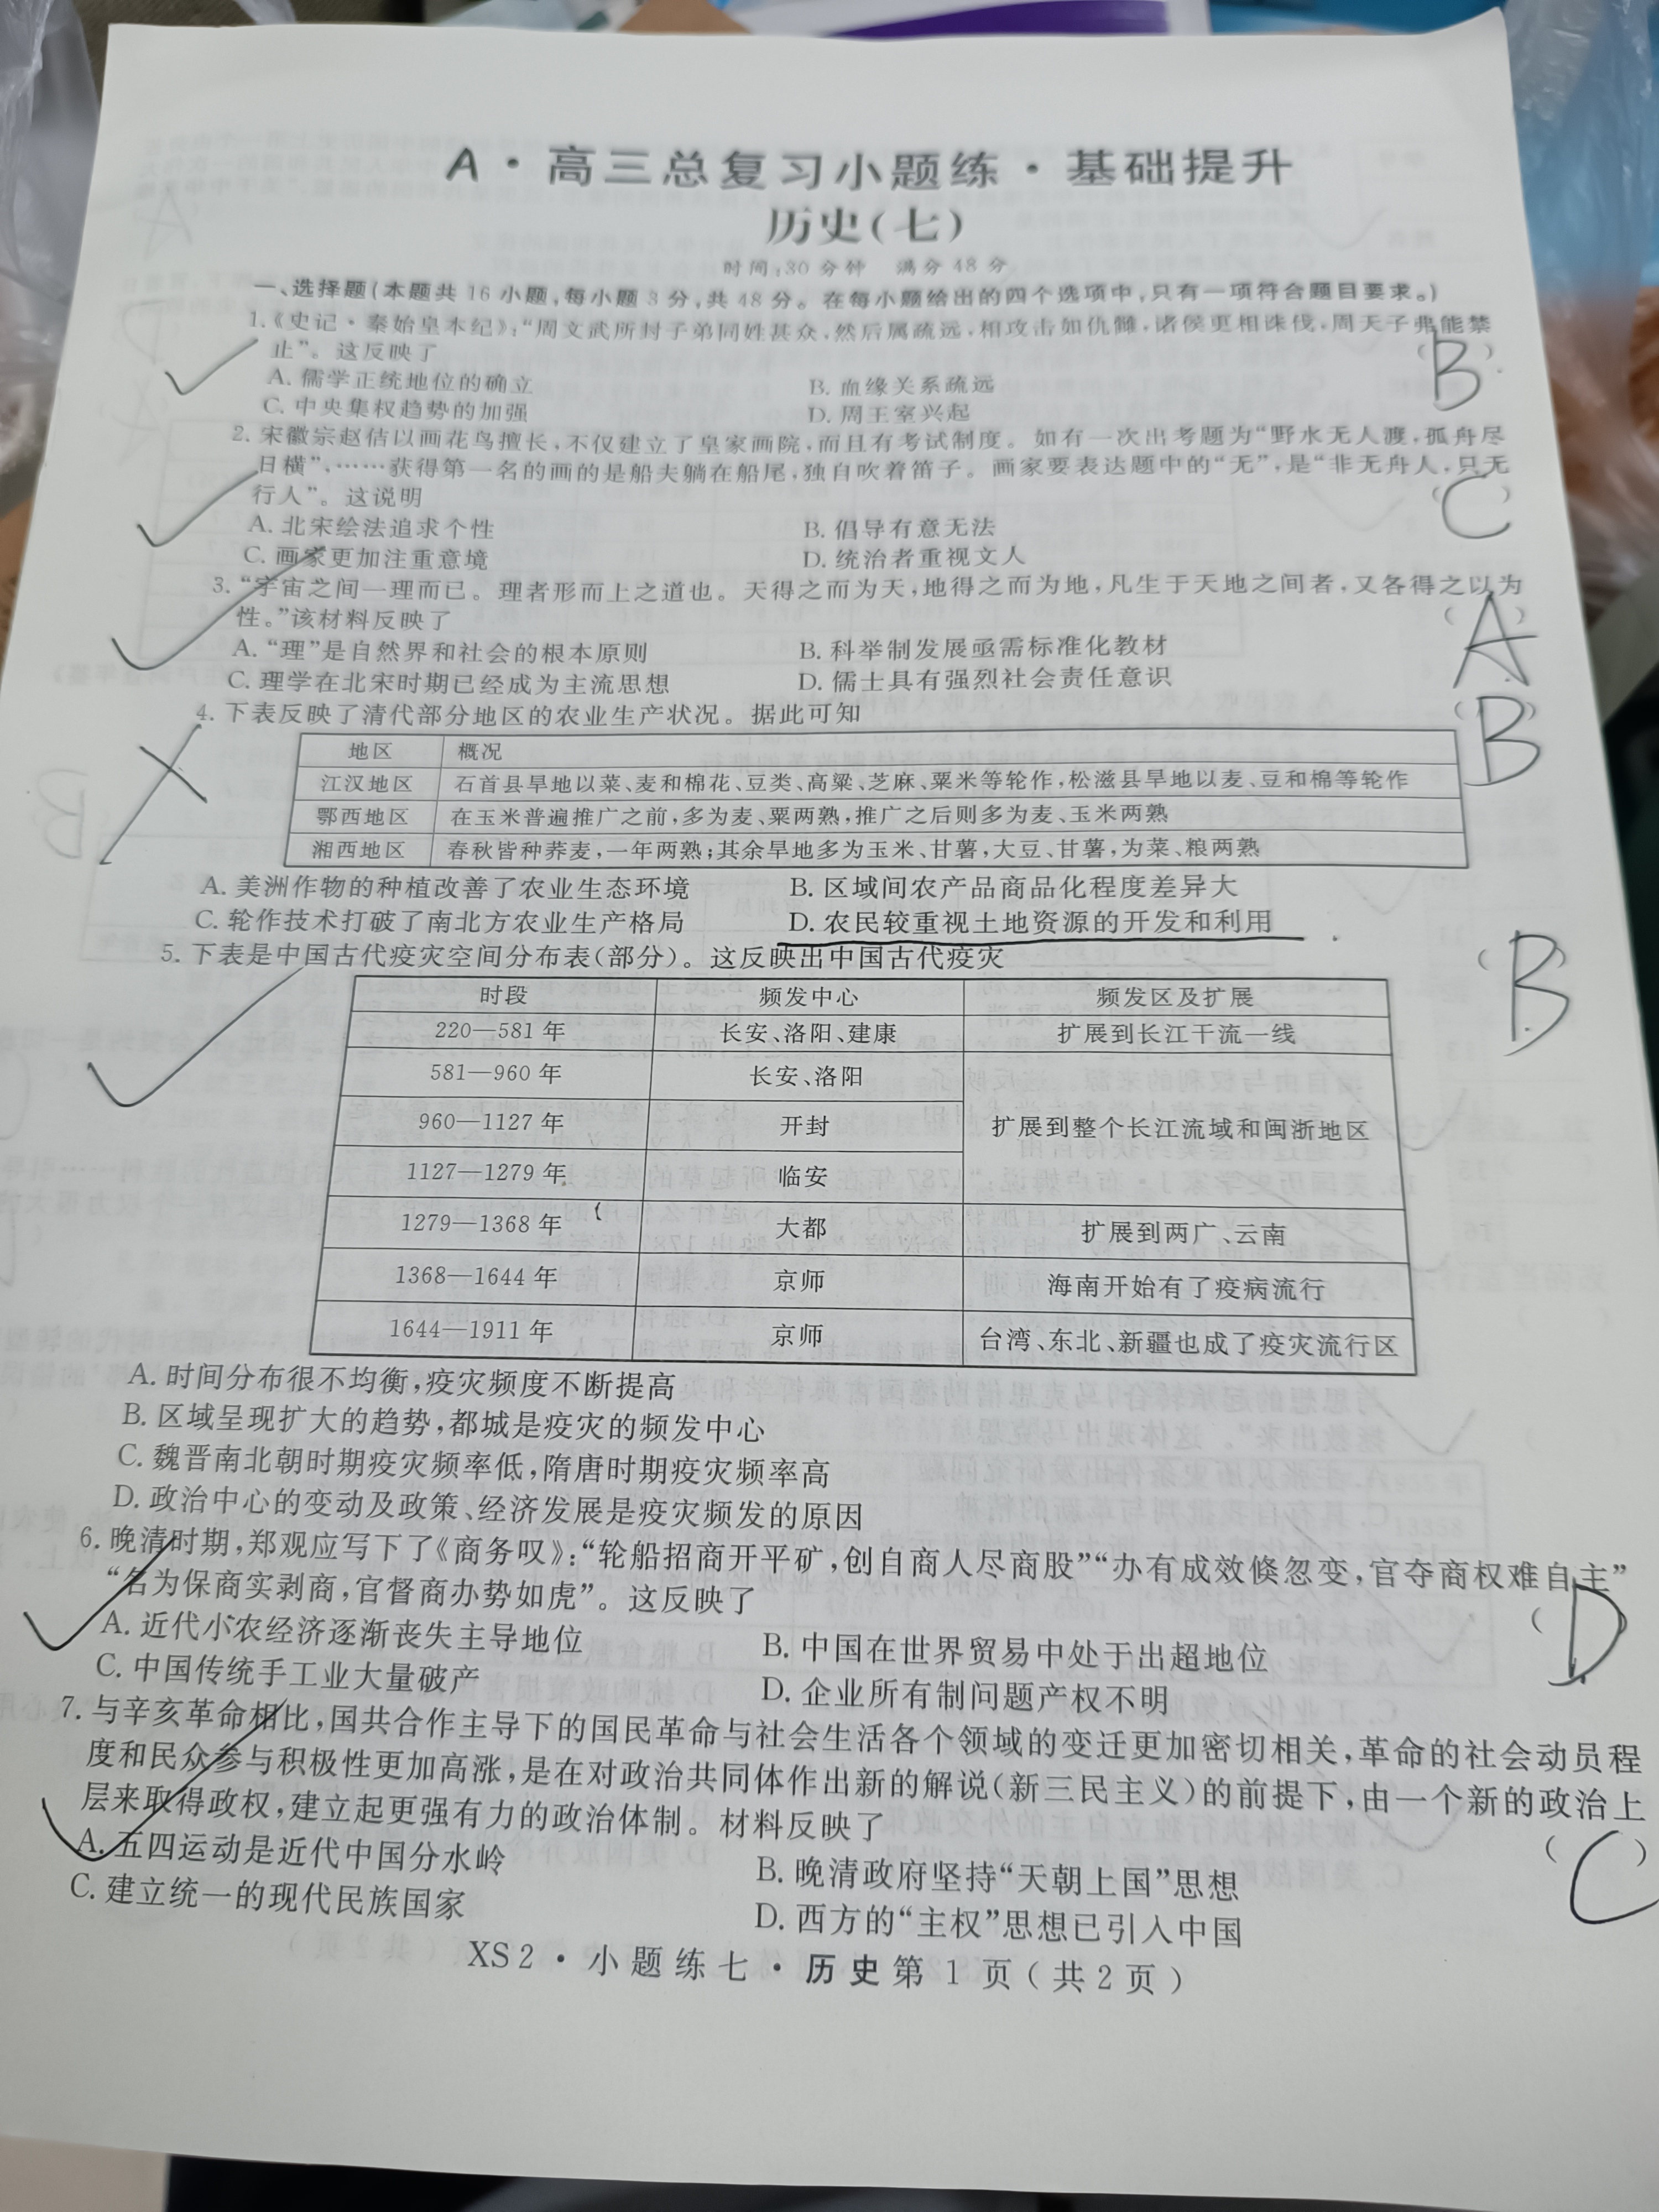 A·高三总复习小题练·基础提升
历史(七)
时间:30分钟 满分48分
一、选择题(本题共16小题,每小题3分,共48分。在每小题给出的四个选项中,只有一项符合题目要求。)
1.《史记·秦始皇本纪》:“周文武所封子弟同姓甚众,然后属疏远,相攻击如仇雠,诸侯更相诛伐,周天子弗能禁
止”。这反映了 (B)
A. 儒学正统地位的确立 B. 血缘关系疏远
C. 中央集权趋势的加强 D. 周王室兴起
2. 宋徽宗赵佶以画花鸟擅长,不仅建立了皇家画院,而且有考试制度。如有一次出考题为“野水无人渡,孤舟尽
日横”,……获得第一名的画的是船夫躺在船尾,独自吹着笛子。画家要表达题中的“无”,是“非无舟人,只无
行人”。这说明 (C)
A. 北宋绘法追求个性 B. 倡导有意无法
C. 画家更加注重意境 D. 统治者重视文人
3. “宇宙之间一理而已。理者形而上之道也。天得之而为天,地得之而为地,凡生于天地之间者,又各得之以为
性。”该材料反映了 (A)
A. “理”是自然界和社会的根本原则 B. 科举制发展亟需标准化教材
C. 理学在北宋时期已经成为主流思想 D. 儒士具有强烈社会责任意识
4. 下表反映了清代部分地区的农业生产状况。据此可知 (B)
地区 概况
江汉地区 石首县旱地以菜、麦和棉花、豆类、高粱、芝麻、粟米等轮作,松滋县旱地以麦、豆和棉等轮作
鄂西地区 在玉米普遍推广之前,多为麦、粟两熟,推广之后则多为麦、玉米两熟
湘西地区 春秋皆种荞麦,一年两熟;其余旱地多为玉米、甘薯,大豆、甘薯,为菜、粮两熟
A. 美洲作物的种植改善了农业生态环境 B. 区域间农产品商品化程度差异大
C. 轮作技术打破了南北方农业生产格局 D. 农民较重视土地资源的开发和利用
5. 下表是中国古代疫灾空间分布表(部分)。这反映出中国古代疫灾 (B)
时段 频发中心 频发区及扩展
220—581年 长安、洛阳、建康 扩展到长江干流一线
581—960年 长安、洛阳
960—1127年 开封 扩展到整个长江流域和闽浙地区
1127—1279年 临安
1279—1368年 大都 扩展到两广、云南
1368—1644年 京师 海南开始有了疫病流行
1644—1911年 京师 台湾、东北、新疆也成了疫灾流行区
A. 时间分布很不均衡,疫灾频度不断提高
B. 区域呈现扩大的趋势,都城是疫灾的频发中心
C. 魏晋南北朝时期疫灾频率低,隋唐时期疫灾频率高
D. 政治中心的变动及政策、经济发展是疫灾频发的原因
6. 晚清时期,郑观应写下了《商务叹》:“轮船招商开平矿,创自商人尽商股”“办有成效倏忽变,官夺商权难自主”
“名为保商实剥商,官督商办势如虎”。这反映了 (D)
A. 近代小农经济逐渐丧失主导地位 B. 中国在世界贸易中处于出超地位
C. 中国传统手工业大量破产 D. 企业所有制问题产权不明
7. 与辛亥革命相比,国共合作主导下的国民革命与社会生活各个领域的变迁更加密切相关,革命的社会动员程
度和民众参与积极性更加高涨,是在对政治共同体作出新的解说(新三民主义)的前提下,由一个新的政治上
层来取得政权,建立起更强有力的政治体制。材料反映了 (C)
A. 五四运动是近代中国分水岭 B. 晚清政府坚持“天朝上国”思想
C. 建立统一的现代民族国家 D. 西方的“主权”思想已引入中国
XS2·小题练七·历史第1页(共2页)